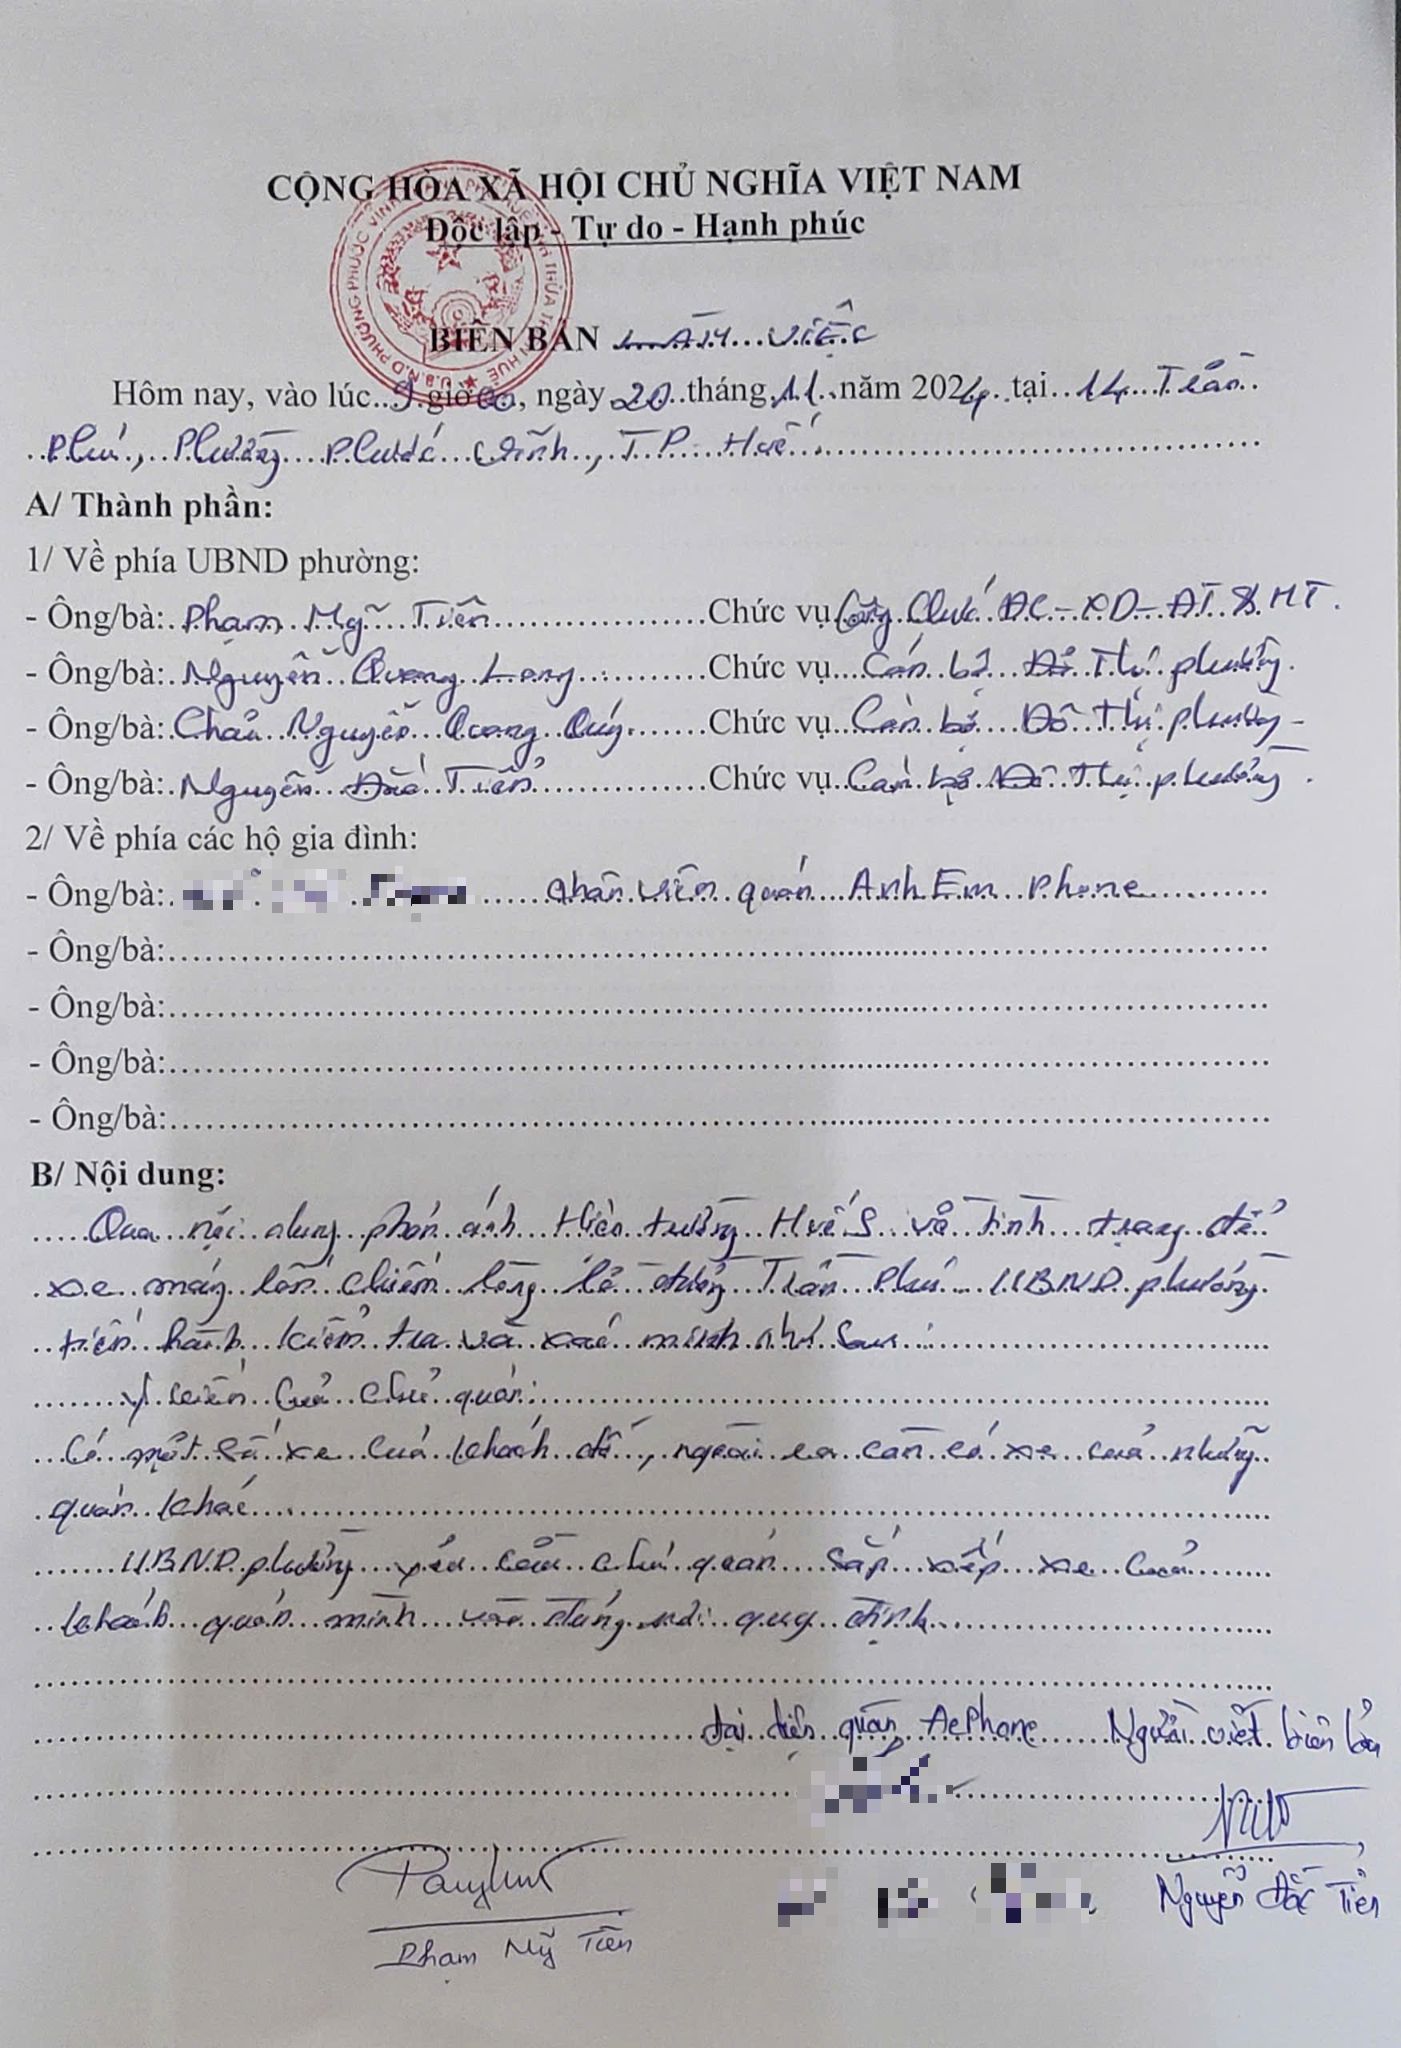 CỘNG HÒA XÃ HỘI CHỦ NGHĨA VIỆT NAM
Độc lập - Tự do - Hạnh phúc
BIÊN BẢN LÀM VIỆC
Hôm nay, vào lúc 9 giờ 00, ngày 20 tháng 11 năm 2024 tại 14 Trần
Phú, Phường Phước Vĩnh, TP. Huế
A/ Thành phần:
1/ Về phía UBND phường:
- Ông/bà: Phạm Mỹ Tiên Chức vụ Công Chức ĐC-XD-ĐT & MT.
- Ông/bà: Nguyễn Quang Long Chức vụ Cán bộ Đô Thị phường.
- Ông/bà: Châu Nguyễn Quang Quý Chức vụ Cán bộ Đô Thị phường
- Ông/bà: Nguyễn Đắc Tiển Chức vụ Cán bộ Đô Thị phường.
2/ Về phía các hộ gia đình:
- Ông/bà: nhân viên quán Anh Em Phone
- Ông/bà:
- Ông/bà:
- Ông/bà:
- Ông/bà:
B/ Nội dung:
Qua nội dung phản ánh Hiện trường Huế S về Tình trạng để
xe máy lấn chiếm lòng lề đường Trần Phú. UBND phường
tiến hành kiểm tra và xác minh như sau:
Ý kiến của chủ quán:
Có một số xe của khách để, ngoài ra còn có xe của những
quán khác
UBND phường yêu cầu chủ quán sắp xếp xe của
khách quán mình vào đúng nơi quy định.
đại diện quán AePhone Người viết biên bản
Phạm Mỹ Tiên Nguyễn Đắc Tiển